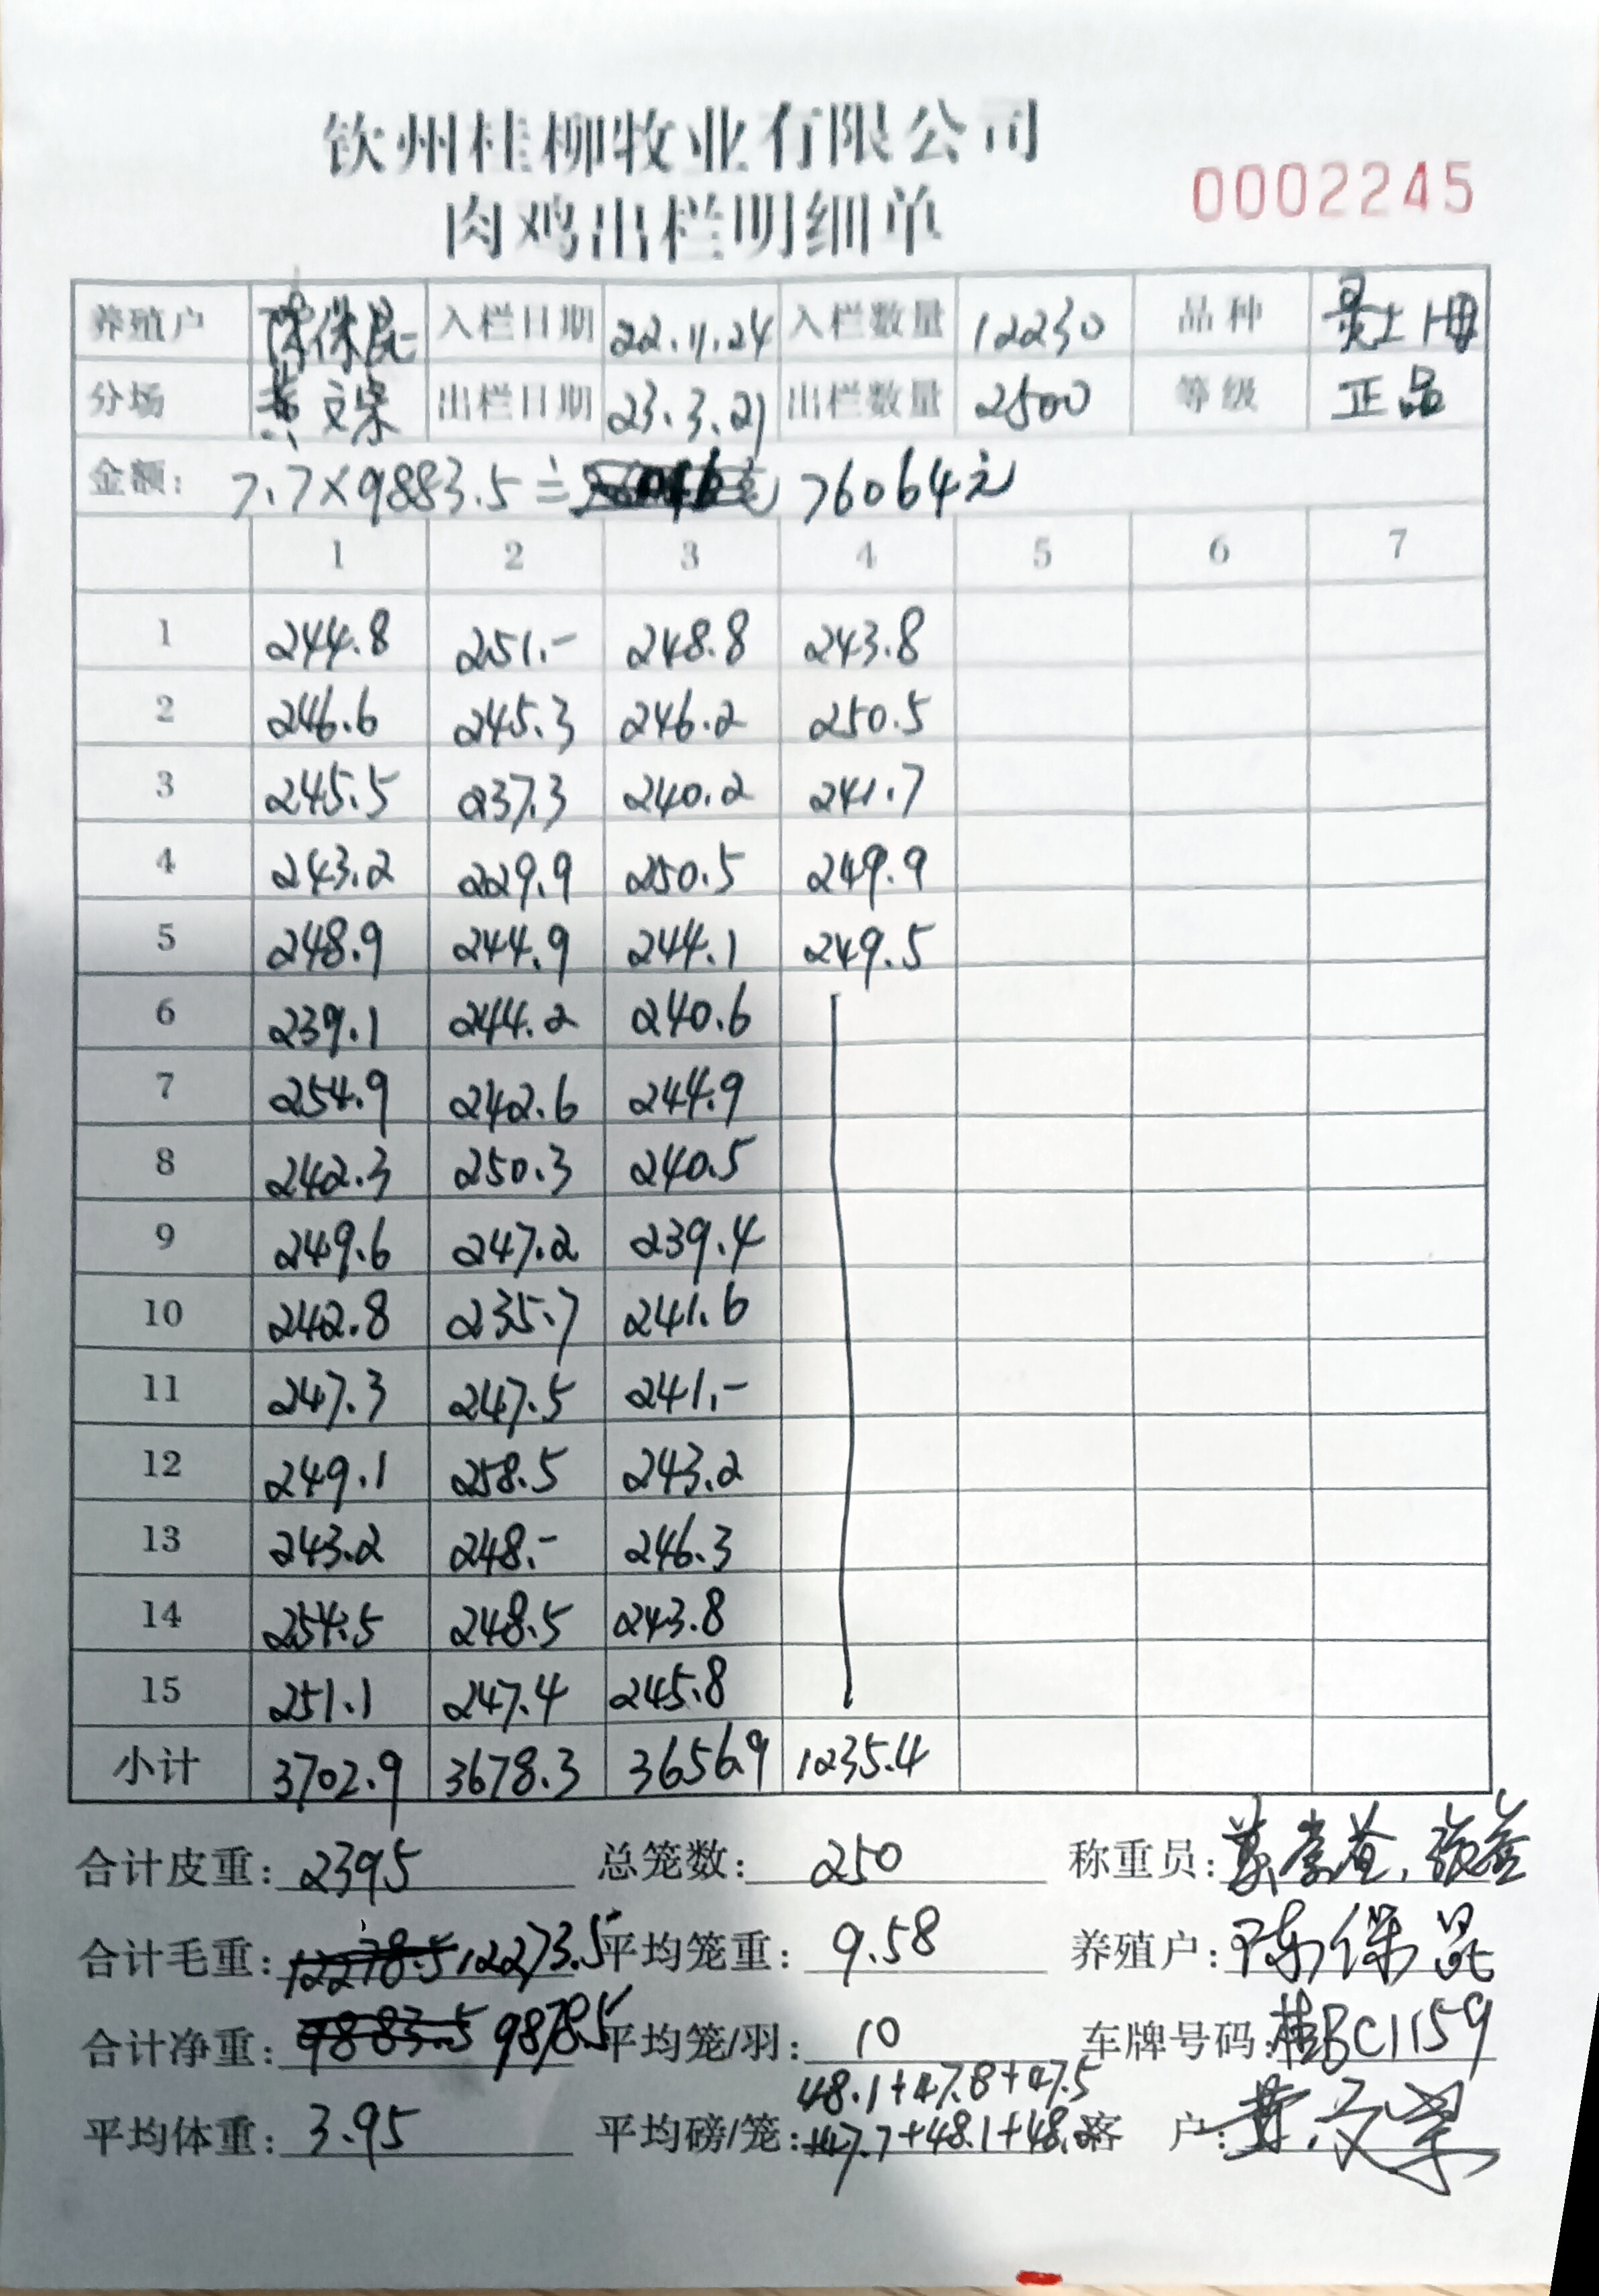 钦州桂柳牧业有限公司
肉鸡出栏明细单
0002245
养殖户 陈保昆 入栏日期 22.11.24 入栏数量 12230 品种 灵土1母
分场 黄文荣 出栏日期 23.3.21 出栏数量 2500 等级 正品
金额: 7.7×9883.5= 76064元
1 2 3 4 5 6 7
1 244.8 251.- 248.8 243.8
2 246.6 245.3 246.2 250.5
3 245.5 237.3 240.2 241.7
4 243.2 229.9 250.5 249.9
5 248.9 244.9 244.1 249.5
6 239.1 244.2 240.6
7 254.9 242.6 244.9
8 242.3 250.3 240.5
9 249.6 247.2 239.4
10 242.8 235.7 241.6
11 247.3 247.5 241.-
12 249.1 258.5 243.2
13 243.2 248.- 246.3
14 254.5 248.5 243.8
15 251.1 247.4 245.8
小计 3702.9 3678.3 3656.9 1235.4
合计皮重: 2395 总笼数: 250 称重员:
合计毛重: 12278.5 12273.5 平均笼重: 9.58 养殖户: 陈保昆
合计净重: 9883.5 9878.5 平均笼/羽: 10 车牌号码: 桂BC1159
48.1+47.8+47.5
平均体重: 3.95 平均磅/笼: +47.7+48.1+48.2 客 户: 黄文荣